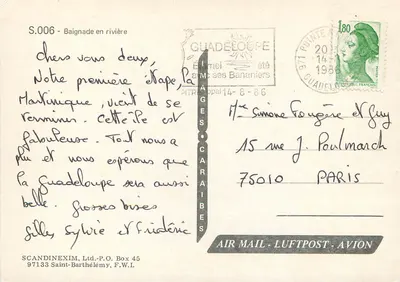 S.006 - Baignade en rivière
Chers vous deux,
Notre première étape, la
Martinique, vient de se
terminer. Cette île est
fabuleuse. Tout nous a
plu et nous espérons que
la Guadeloupe sera aussi
belle. Grosses bises
Gilles Sylvie et Frédéric
SCANDINEXIM, Ltd.-P.O. Box 45
97133 Saint-Barthélémy, F.W.I.
IMAGES CARAIBES
GUADELOUPE
14-8-86
971 POINTE
20
14-
1986
GUADELOUPE
1,80
Simone Fougère et Guy
15 rue J. Poulmarch
75010 PARIS
AIR MAIL - LUFTPOST - AVION